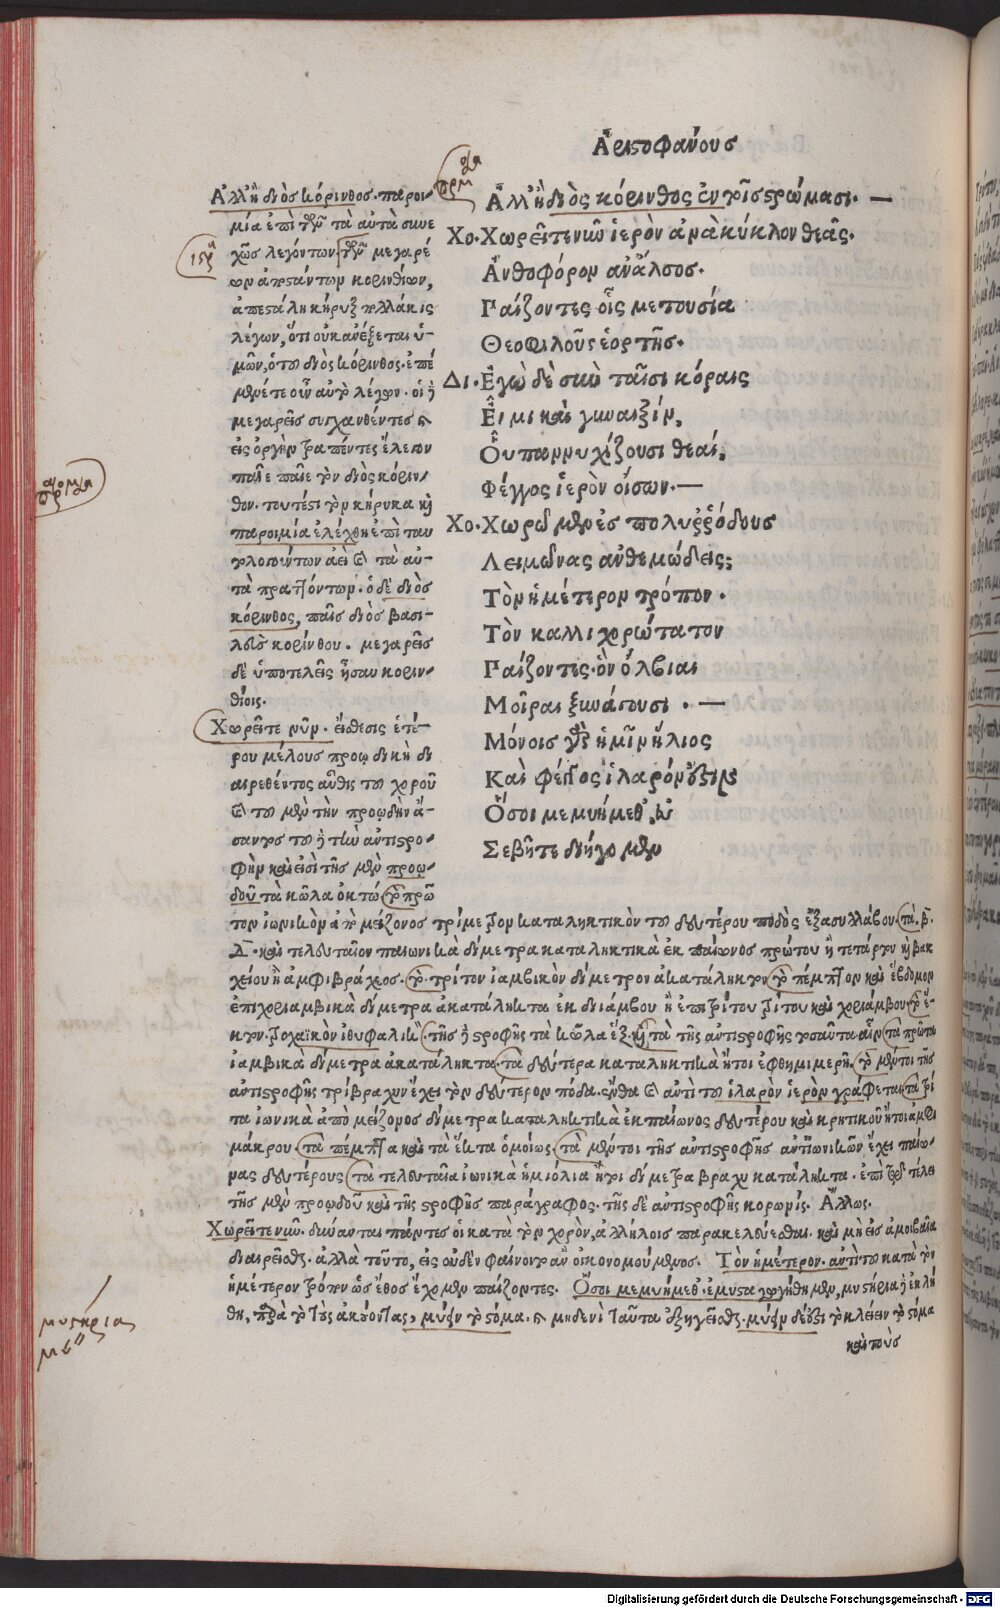 Ἀριστοφάνους
Ἀλλ' ἢ διὸς κόρινθος ἐν τοῖς στρώμασι. —
Χο. Χωρεῖτε νῦν ἱερὸν ἀνὰ κύκλον θεᾶς.
Ἀνθοφόρον ἀν' ἄλσος.
Παίζοντες οἷς μετουσία
Θεοφιλοῦς ἑορτῆς.
Δι. Ἐγὼ δὲ σὺν ταῖσι κόραις
Εἶμι καὶ γυναιξίν,
Οὗ παννυχίζουσι θεαί,
Φέγγος ἱερὸν οἴσων. —
Χο. Χωρῶμεν ἐς πολυῤῥόδους
Λειμῶνας ἀνθεμώδεις;
Τὸν ἡμέτερον τρόπον.
Τὸν καλλιχορώτατον
Παίζοντες. ὃν ὄλβιαι
Μοῖραι ξυνάγουσι. —
Μόνοις γὰρ ἡμῖν ἥλιος
Καὶ φέγγος ἱλαρόν ἐστιν
Ὅσοι μεμυήμεθ', εὐ
Σεβῆ τε διήγομεν
Ἀλλ' ἢ διὸς κόρινθος. παροι-
μία ἐπὶ τῶν τὰ αὐτὰ συνε
χῶς λεγόντων. τῶν μεγαρέ
ων ἀποστάντων κορινθίων,
ἀπεστάλη κῆρυξ πολλάκις
λέγων, ὅτι οὐκ ἀνέξεται ὑ-
μῶν, ὁ τοῦ διὸς κόρινθος. ἐπέ
μενέ τε οὖν αὐτὸ λέγων. οἱ δὲ
μεγαρεῖς συγχανθέντες καὶ
εἰς ὀργὴν τραπέντες ἔλεγον
παῖε παῖε τὸν διὸς κόριν-
θον. τουτέστι τὸν κήρυκα καὶ
παροιμία ἐλέχθη ἐπὶ ταυ
τολογούντων ἀεὶ καὶ τὰ αὐ-
τὰ πραττόντων. ὁ δὲ διὸς
κόρινθος, παῖς διὸς βασι-
λεὺς κορίνθου. μεγαρεῖς
δὲ ὑποτελεῖς ἦσαν κοριν-
θίοις.
Χωρεῖτε νῦν. εἴσθεσις ἑτέ-
ρου μέλους προῳδικὴ δι
αιρεθέντος αὖθις τοῦ χοροῦ
καὶ τοῦ μὲν τὴν προῳδὴν ᾄ-
σαντος τοῦ δὲ τὴν ἀντιστρο-
φὴν καὶ εἰσὶ τῆς μὲν προῳ-
δοῦ τὰ κῶλα ὀκτώ τὸ πρῶ
τον ἰωνικὸν ἀπὸ μείζονος τρίμετρον καταληκτικὸν τοῦ δευτέρου ποδὸς ἑξασυλλάβου. τὰ. β.
δ. καὶ τελευταῖον παιωνικὰ δίμετρα καταληκτικὰ ἐκ παίωνος πρώτου ἢ τετάρτου καὶ βακ
χείου ἢ ἀμφιβράχος. τὸ τρίτον ἰαμβικὸν δίμετρον ἀκατάληκτον τὸ πέμπτον καὶ ἕβδομον
ἐπιχοριαμβικὰ δίμετρα ἀκατάληκτα ἐκ διιάμβου ἢ ἐπιτρίτου τρίτου καὶ χοριάμβου. τὸ ἕ-
κτον. τροχαϊκὸν ἰθυφαλικόν. τῆς δὲ στροφῆς τὰ κῶλα ἕξ. καὶ τὰ τῆς ἀντιστροφῆς τοσαῦτα. ὧν τὰ πρῶτα
ἰαμβικὰ δίμετρα ἀκατάληκτα. τὰ δεύτερα καταληκτικὰ ἤτοι ἐφθημιμερῆ. τὸ μέντοι τῆς
ἀντιστροφῆς τρίβραχυν ἔχει τὸν δεύτερον πόδα. ἔνθα καὶ ἀντὶ τοῦ ἱλαρὸν ἱερὸν γράφεται τὰ τρί
τα ἰωνικὰ ἀπὸ μείζονος δίμετρα καταληκτικὰ ἐκ παίωνος δευτέρου καὶ κρητικοῦ ἤτοι ἀμφι
μάκρου. τὰ πέμπτα καὶ τὰ ἕκτα ὁμοίως. τὰ μέντοι τῆς ἀντιστροφῆς ἀντὶ ἰωνικῶν ἔχει παίω-
νας δευτέρους τὰ τελευταῖα ἰωνικὰ ἡμιόλια ἤτοι δίμετρα βραχυκατάληκτα. ἐπὶ τῷ τέλει
τῆς μὲν προῳδοῦ καὶ τῆς στροφῆς παράγραφος. τῆς δὲ ἀντιστροφῆς κορωνίς. Ἄλλως.
Χωρεῖτε νῦν. δύνανται πάντες οἱ κατὰ τὸν χορὸν, ἀλλήλοις παρακελεύεσθαι. καὶ μὴ εἰς ἀμοιβαῖα
διαιρεῖσθαι. ἀλλὰ τοῦτο, εἰς οὐδὲν φαίνοιτο ἂν οἰκονομούμενος. Τὸν ἡμέτερον. ἀντὶ τοῦ κατὰ τὸν
ἡμέτερον τρόπον ὡς ἔθος ἔχομεν παίζοντες. Ὅσοι μεμυήμεθ'. ἐμυσταγωγήθημεν, μυστήρια δὲ ἐκλή
θη, παρὰ τὸ τοὺς ἀκούοντας, μύειν τὸ στόμα. καὶ μηδενὶ ταῦτα ἐξηγεῖσθαι. μύειν δέ ἐστι τὸ κλείειν τὸ στόμα
καὶ τοὺς
μυστηρια